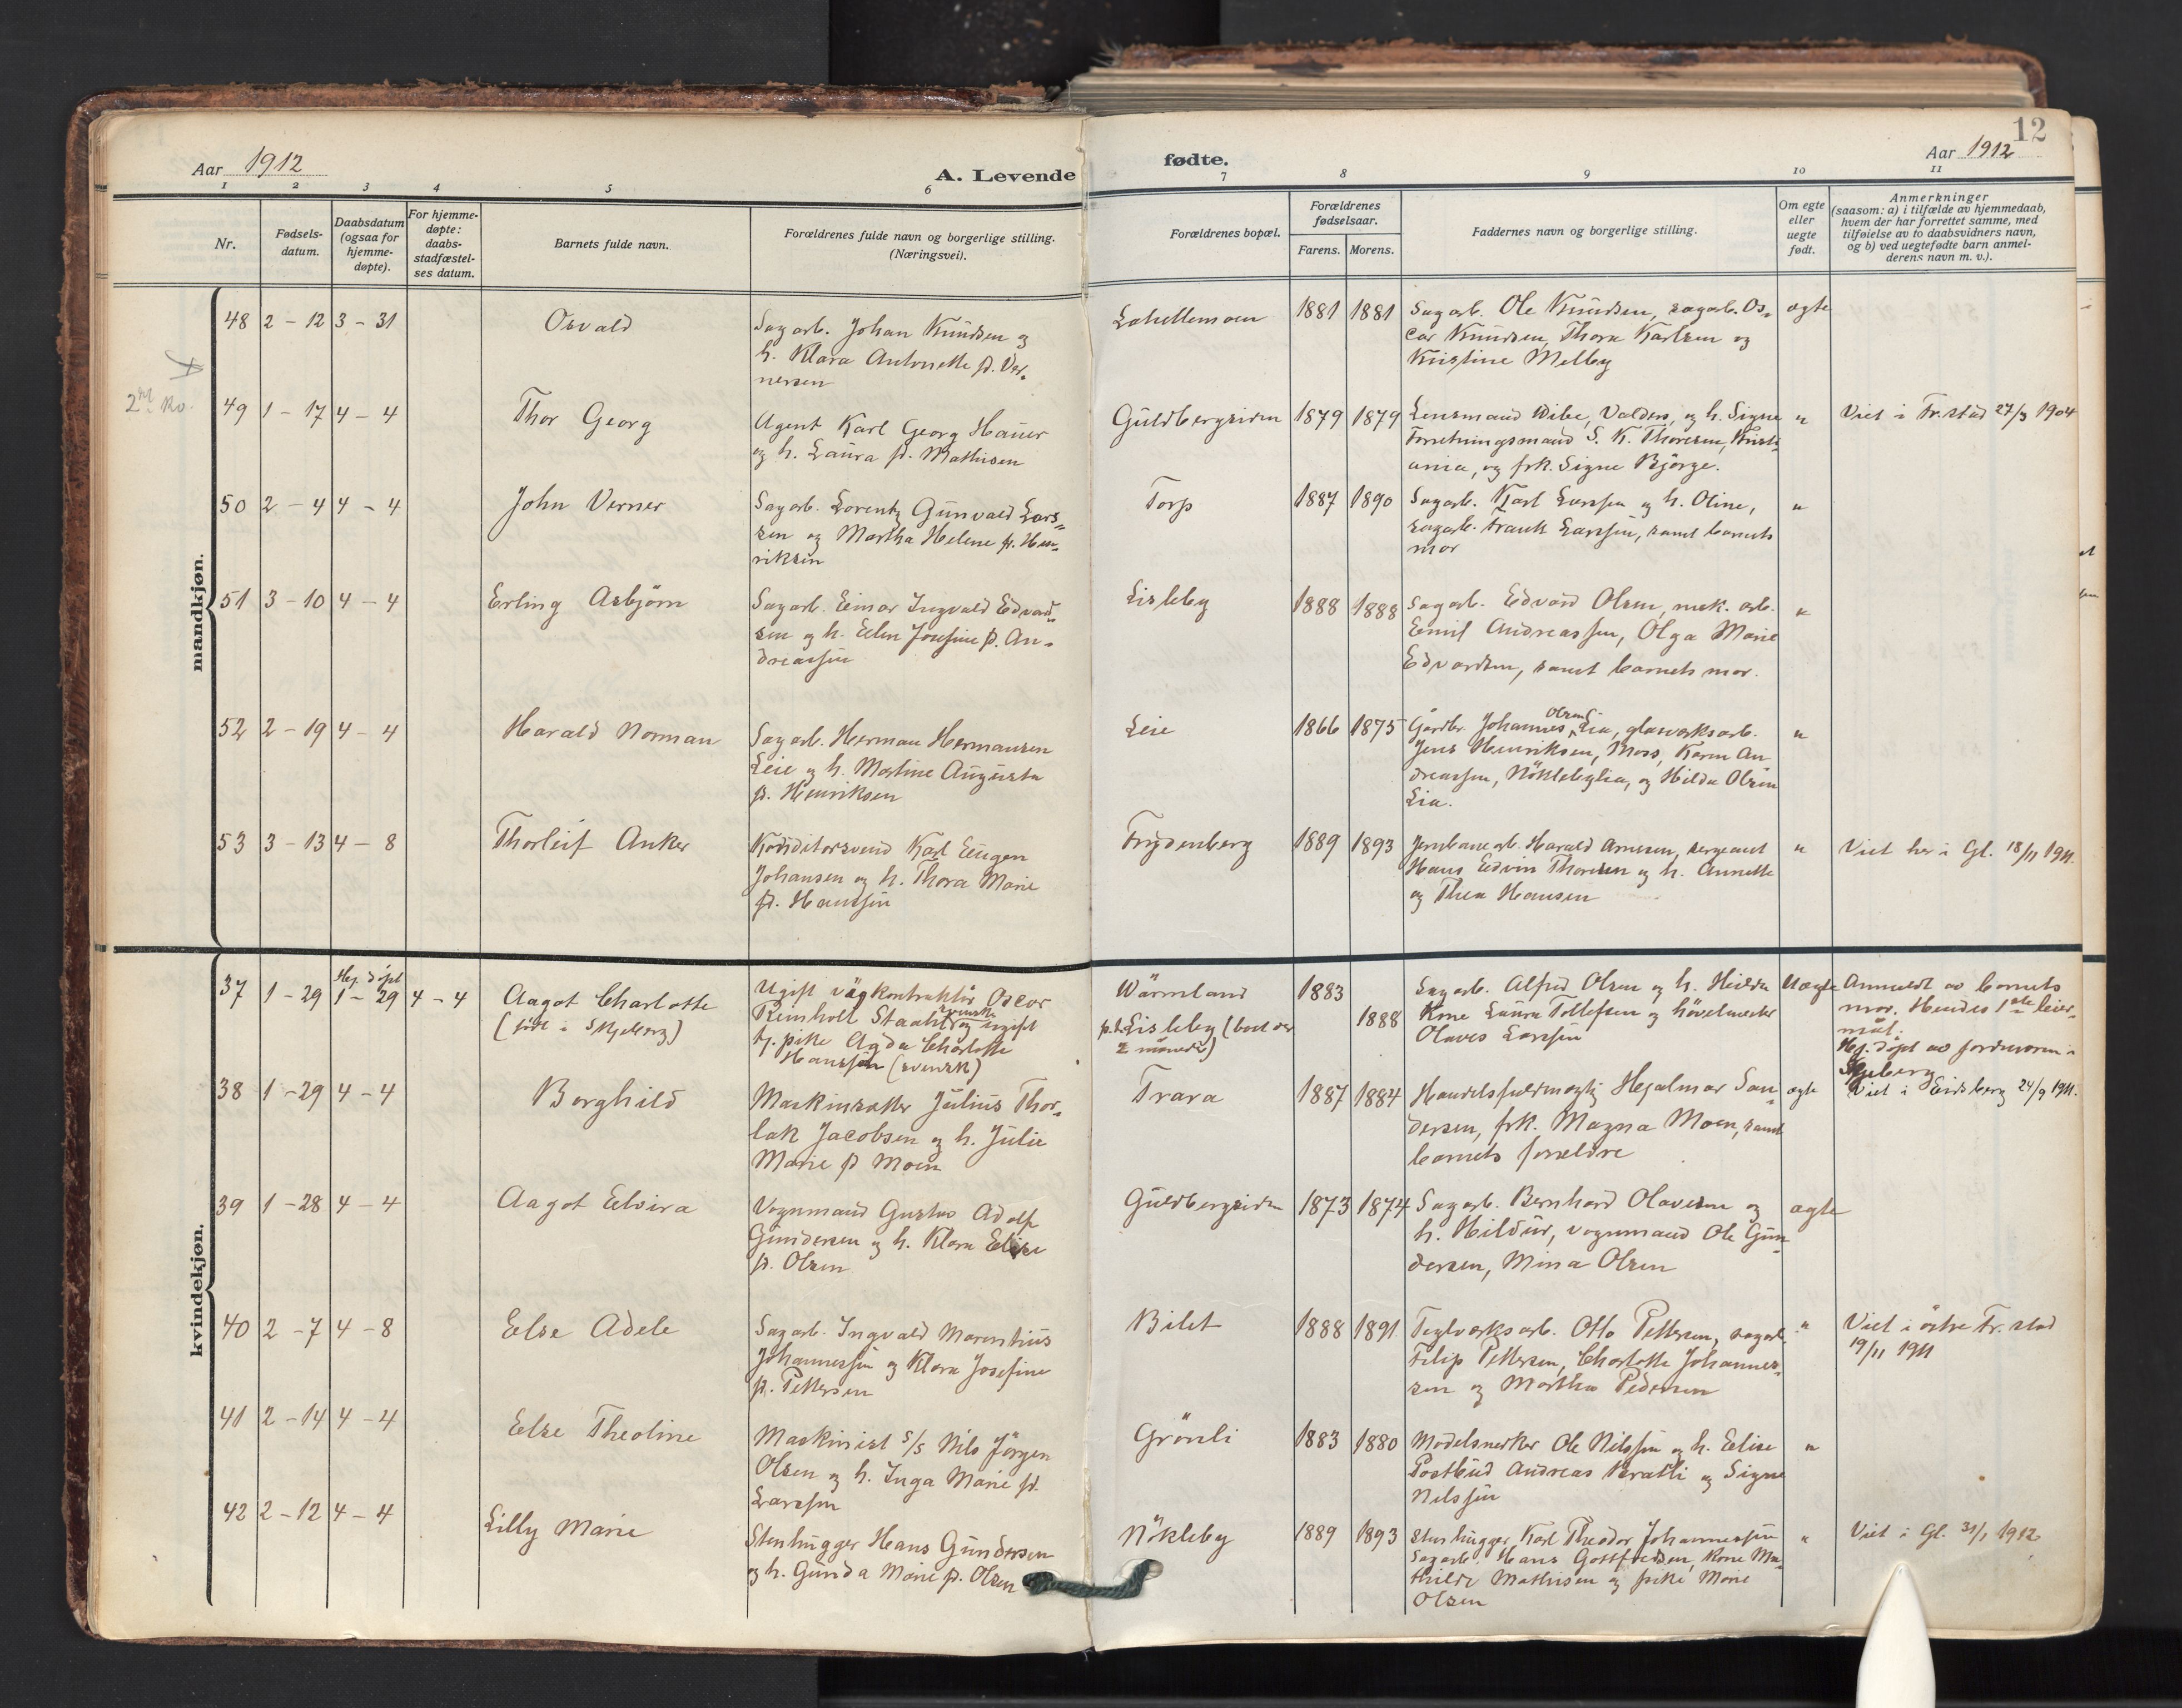 12
Aar 1912
A. Levende
fødte.
Aar 1912
1 2 3 4 5 6 7 8 9 10 11
Nr.
Fødsels-
datum.
Daabsdatum
(ogsaa for
hjemme-
døpte).
For hjemme-
døpte:
daabs-
stadfæstel-
ses datum.
Barnets fulde navn.
Forældrenes fulde navn og borgerlige stilling.
(Næringsvei).
Forældrenes bopæl.
Forældrenes
fødselsaar.
Farens. Morens.
Faddernes navn og borgerlige stilling.
Om egte
eller
uegte
født.
Anmerkninger
(saasom: a) i tilfælde av hjemmedaab,
hvem der har forrettet samme, med
tilføielse av to daabsvidners navn,
og b) ved uegtefødte barn anmel-
derens navn m. v.).
mandkjøn.
48 2 - 12 3 - 31
Osvald
Sagarb. Johan Knudsen og
h. Klara Antonette f. Ver-
nersen
1881 1881
Sagarb. Ole Knudsen, sagarb. Os-
car Knudsen, Thora Karlsen og
Kristine Melby
ægte
49 1 - 17 4 - 4
Thor Georg
Agent Karl Georg Hauer
og h. Laura f. Mathisen
Guldbergsiden
1879 1879
Lensmand Wibe, Valders, og h. Signe
Forretningsmand S. K. Thoresen, Kristi-
ania, og frk. Signe Bjørge.
"
Viet i Fr.stad 27/3 1904
50 2 - 4 4 - 4
John Verner
Sagarb. Lorentz Gunvald Lars-
sen og Martha Helene f. Hen-
riksen
Torp
1887 1890
Sagarb. Karl Larssen og h. Oline,
sagarb. Frank Larssen, samt barnets
mor
"
51 3 - 10 4 - 4
Erling Asbjørn
Sagarb. Einar Ingvald Edvard-
sen og h. Elen Josefine f. An-
dreassen
Lisleby
1888 1888
Sagarb. Edvard Olsen, mek. arb.
Emil Andreassen, Olga Marie
Edvardsen, samt barnets mor.
"
52 2 - 19 4 - 4
Harald Norman
Sagarb. Herman Hermansen
Leie og h. Martine Augusta
f. Henriksen
Leie
1866 1875
Gardbr. Johannes Olsen Lia, glasverksarb.
Jens Henriksen, Moss, Karen An-
dreassen, Nøklebylia, og Hilda Olsen
Lia.
"
53 3 - 13 4 - 8
Thorleif Anker
Konditorsvend Karl Eugen
Johansen og h. Thora Marie
f. Hanssen
Frydenberg
1889 1893
Jernbanearb. Harald Arnesen, sergeant
Hans Edvin Thoresen og h. Annette
og Thea Hansen
"
Viet her i Gl. 18/11 1911.
kvindekjøn.
37 1 - 29 Hj. døpt 1 - 29 4 - 4
Aagot Charlotte
(født i Skjeberg)
Ugift vägkontraktör Oscar
Reinholt Staahl, svensk og ugift
tj. pike Agda Charlotte
Hanssen (svensk)
Wärmland
p.t. Lisleby (bort over
2 måneder)
1883
1888
Sagarb. Alfred Olsen og h. Hilda
Kone Laura Tollefsen og høvelmester
Olaves Larssen
Uægte
Anmeldt av barnets
mor. Hendes 1ste leier-
mål.
Hj. døpt av jordmoren i
Skjeberg
38 1 - 29 4 - 4
Borghild
Maskinsætter Julius Thor-
lak Jacobsen og h. Julie
Marie f. Moen
Trara
1887 1884
Handelsfuldmægtig Hjalmar San-
dersen, frk. Magna Moen, samt
barnets forældre
ægte
Viet i Eidsberg 24/9 1911.
39 1 - 28 4 - 4
Aagot Elvira
Vognmand Gustav Adolf
Gundersen og h. Klara Elise
f. Olsen
Guldbergsiden
1873 1874
Sagarb. Bernhard Olavesen og
h. Hildur, vognmand Ole Gun-
dersen, Mina Olsen
ægte
40 2 - 7 4 - 8
Else Adele
Sagarb. Ingvald Marentius
Johannessen og Klara Josefine
f. Pettersen
Bilet
1888 1891
Teglverksarb. Otto Pettersen, sagarb.
Filip Pettersen, Charlotte Johannes-
sen og Martha Pedersen
"
Viet i östre Fr.stad
19/11 1911
41 2 - 14 4 - 4
Else Theoline
Maskinist S/S Nils Jörgen
Olsen og h. Inga Marie f.
Larssen
Grönli
1883 1880
Modelsnekker Ole Nilssen og h. Elise
Postbud Andreas Bratli og Signe
Nilssen
"
42 2 - 12 4 - 4
Lilly Marie
Stenhugger Hans Gundersen
og h. Gunda Marie f. Olsen
Nökleby
1889 1893
Stenhugger Karl Theodor Johannessen
Sagarb. Hans Gottfredsen, kone Ma-
thilde Mathisen og pike Marie
Olsen
"
Viet i Gl. 31/1 1912